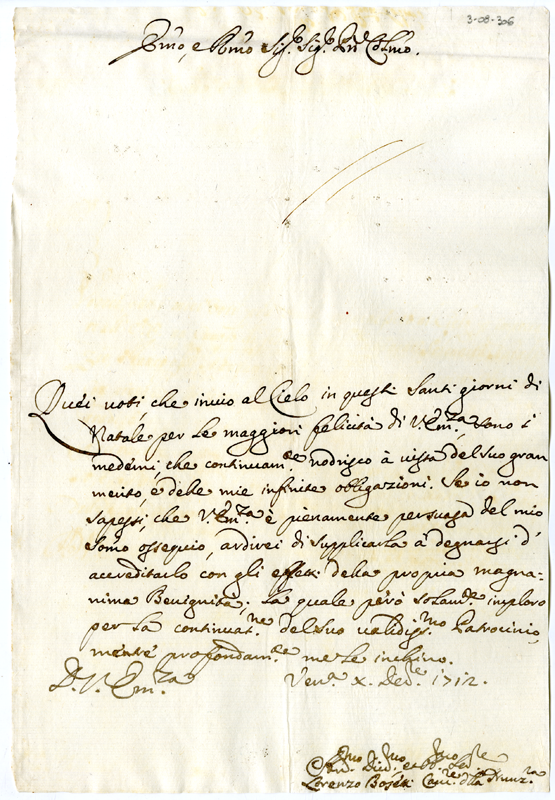 3-08-306
Emo, e Rmo Sig.r Sig.r Pñe Colmo.
Quei voti, che invio al Cielo in questi Santi giorni di
Natale per le maggiori felicità di V.Em.za, sono i
medemi che continuam.te nodrisco à vista del suo gran
merito, e delle mie infinite obligazioni. Se io non
sapessi, che V.Em.za è pienamente persuasa del mio
somo ossequio, ardirei di supplicarla à degnarsi d'
accreditarlo con gli effetti della propria magna-
nima Benignità; la quale però solam.te imploro
per la continuat.ne del suo validiss.mo Patrocinio,
mentre profondam.te me le inchino.
D. V. Em.za Ven.a X. Dec.re 1712.
Lorenzo